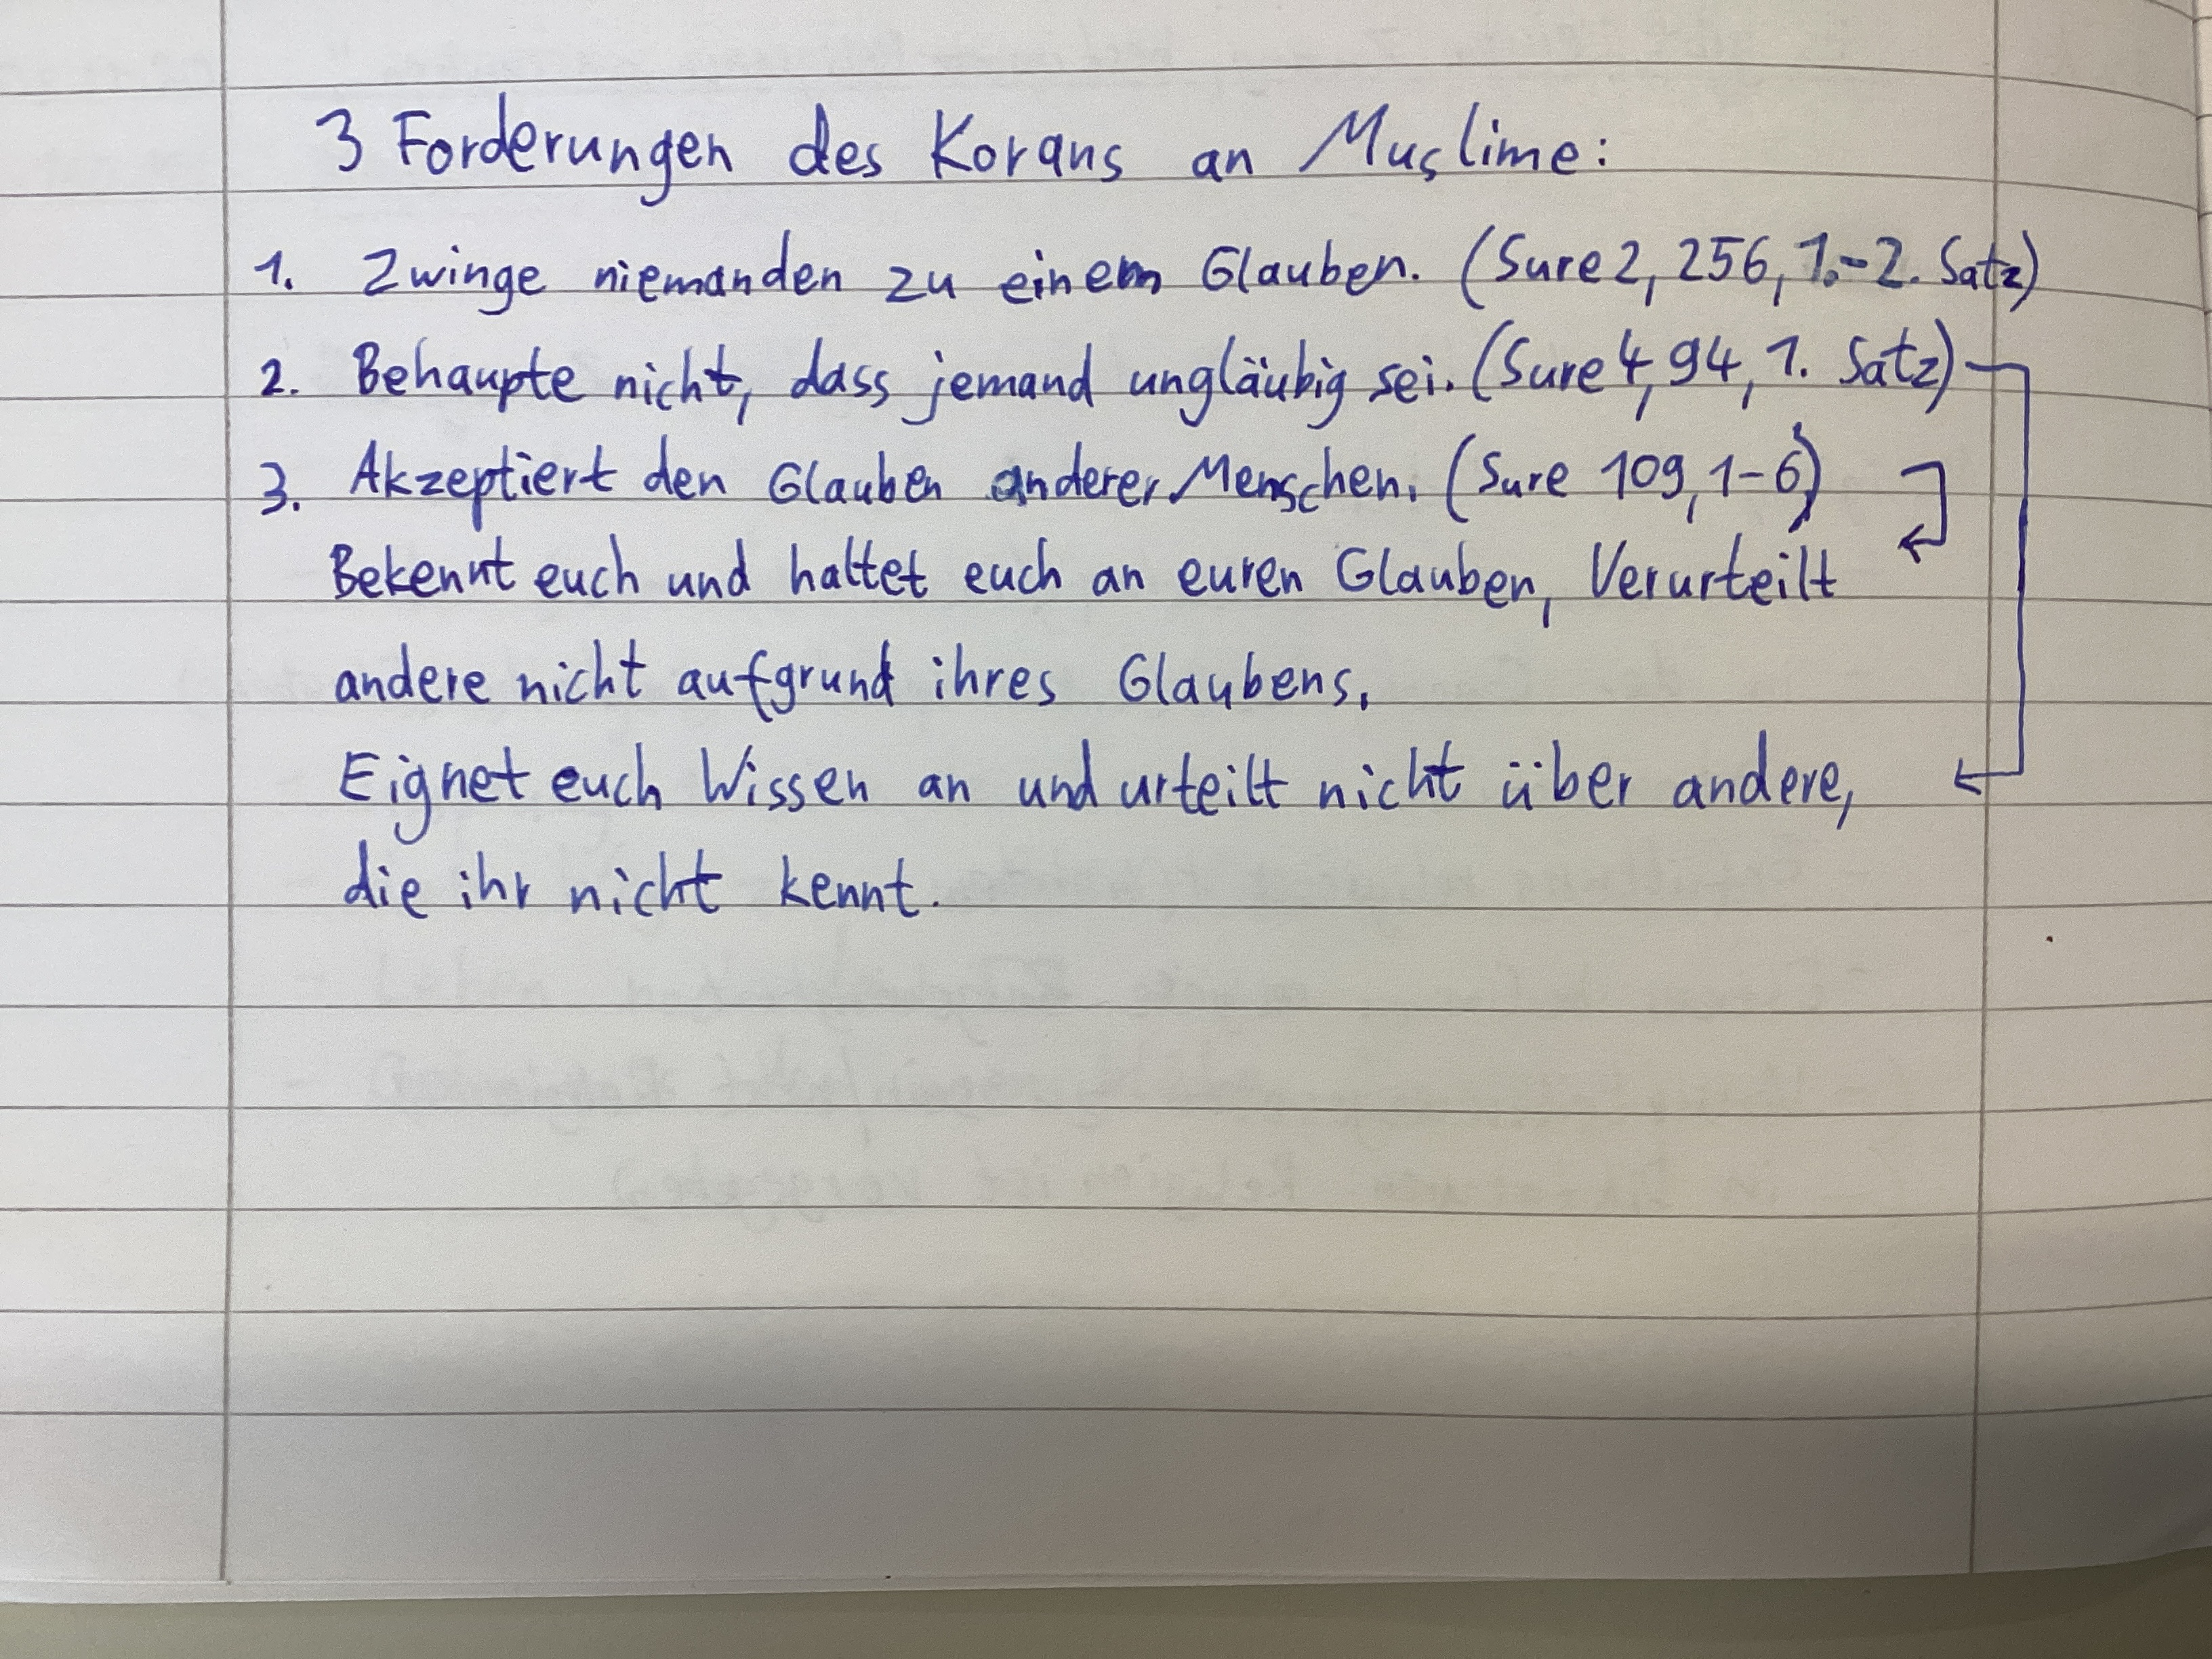 3 Forderungen des Korans an Muslime:
1. Zwinge niemanden zu einem Glauben. (Sure 2, 256, 1.-2. Satz)
2. Behaupte nicht, dass jemand ungläubig sei. (Sure 4, 94, 1. Satz)
3. Akzeptiert den Glauben anderer Menschen. (Sure 109, 1-6)
Bekennt euch und haltet euch an euren Glauben, Verurteilt
andere nicht aufgrund ihres Glaubens.
Eignet euch Wissen an und urteilt nicht über andere,
die ihr nicht kennt.